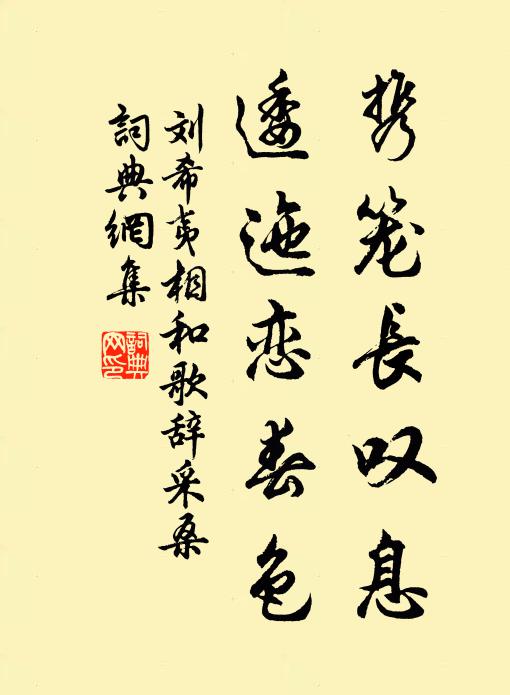 携笼长叹息
逶迤恋春色
刘希夷相和歌辞采桑
詞典網集
詞典
网印